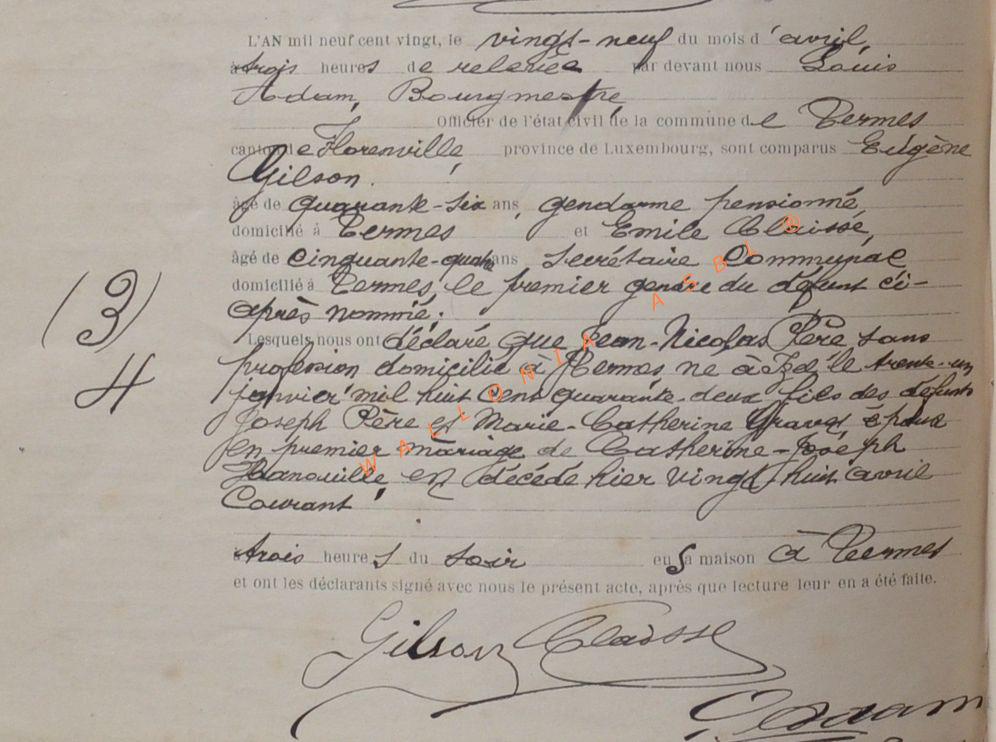 L'AN mil neuf cent vingt, le vingt-neuf du mois d'avril,
à trois heures de relevée par devant nous Louis
Adam, Bourgmestre,
Officier de l'état civil de la commune de Termes
canton de Florenville, province de Luxembourg, sont comparus Eugène
Gilson.
âgé de quarante-six ans, gendarme pensionné
domicilié à Termes et Emile Claisse,
âgé de cinquante-quatre ans secrétaire Communal
domicilié à Termes, le premier gendre du défunt ci-
après nommé;
Lesquels nous ont déclaré que Jean-Nicolas Père sans
profession domicilié à Termes né à Izel le trente-un
janvier mil huit cent quarante-deux fils des défunts
Joseph Père et Marie-Catherine époux
en premier mariage de Catherine-Joseph
est décédé hier vingt huit avril
Courant
à trois heures du soir en sa maison à Termes
et ont les déclarants signé avec nous le présent acte, après que lecture leur en a été faite.
(3)
4
Gilson Claisse
Adam
WALLONIA ASBL ©